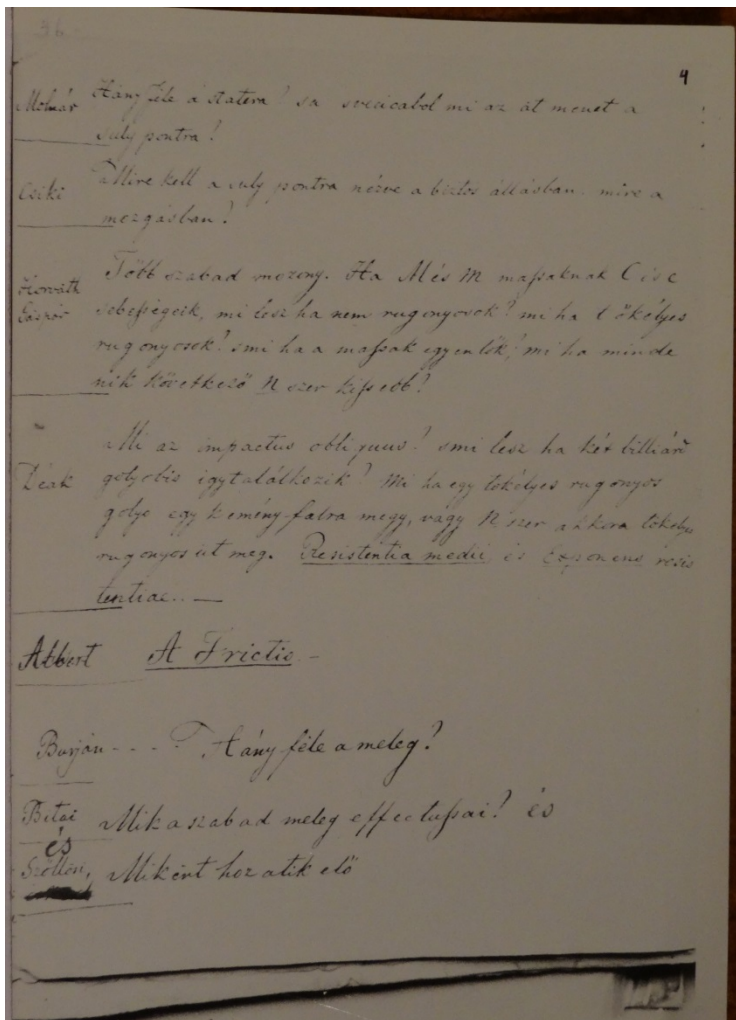 36
4
Molnár Hány féle a statera? sa svicicabol mi az át menet a
suly pontra?
Csiki Mire kell a suly pontra nézve a biztos állásban. mire a
mozgásban?
Horváth Gáspár Több szabad mozony. Ha M és m massaknak C és c
sebességeik, mi lesz ha nem rugonyosok? mi ha tökélyes
rugonyosok? smi ha a massak egyenlők? mi ha minde
nik következő n szer kissebb?
Deák Mi az impactus obliquus? smi lesz ha két billiárd
golyobis így találkozik? Mi ha egy tökélyes rugonyos
golyo egy kemény falra megy, vagy n szer akkora tökélyes
rugonyost üt meg. Resistentia medii és Exponens resis
tentiae..—
Albert A Frictio.—
Burján - - - Hány féle a meleg?
Bitai és Mik a szabad meleg effectussai? és
Szöllősi, Miként hozatik elő